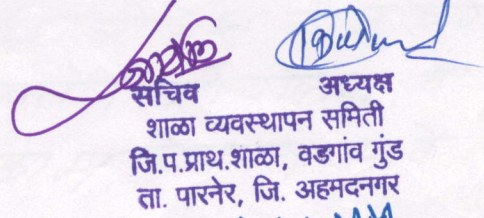 सचिव अध्यक्ष
शाळा व्यवस्थापन समिती
जि.प.प्राथ.शाळा, वडगांव गुंड
ता. पारनेर, जि. अहमदनगर